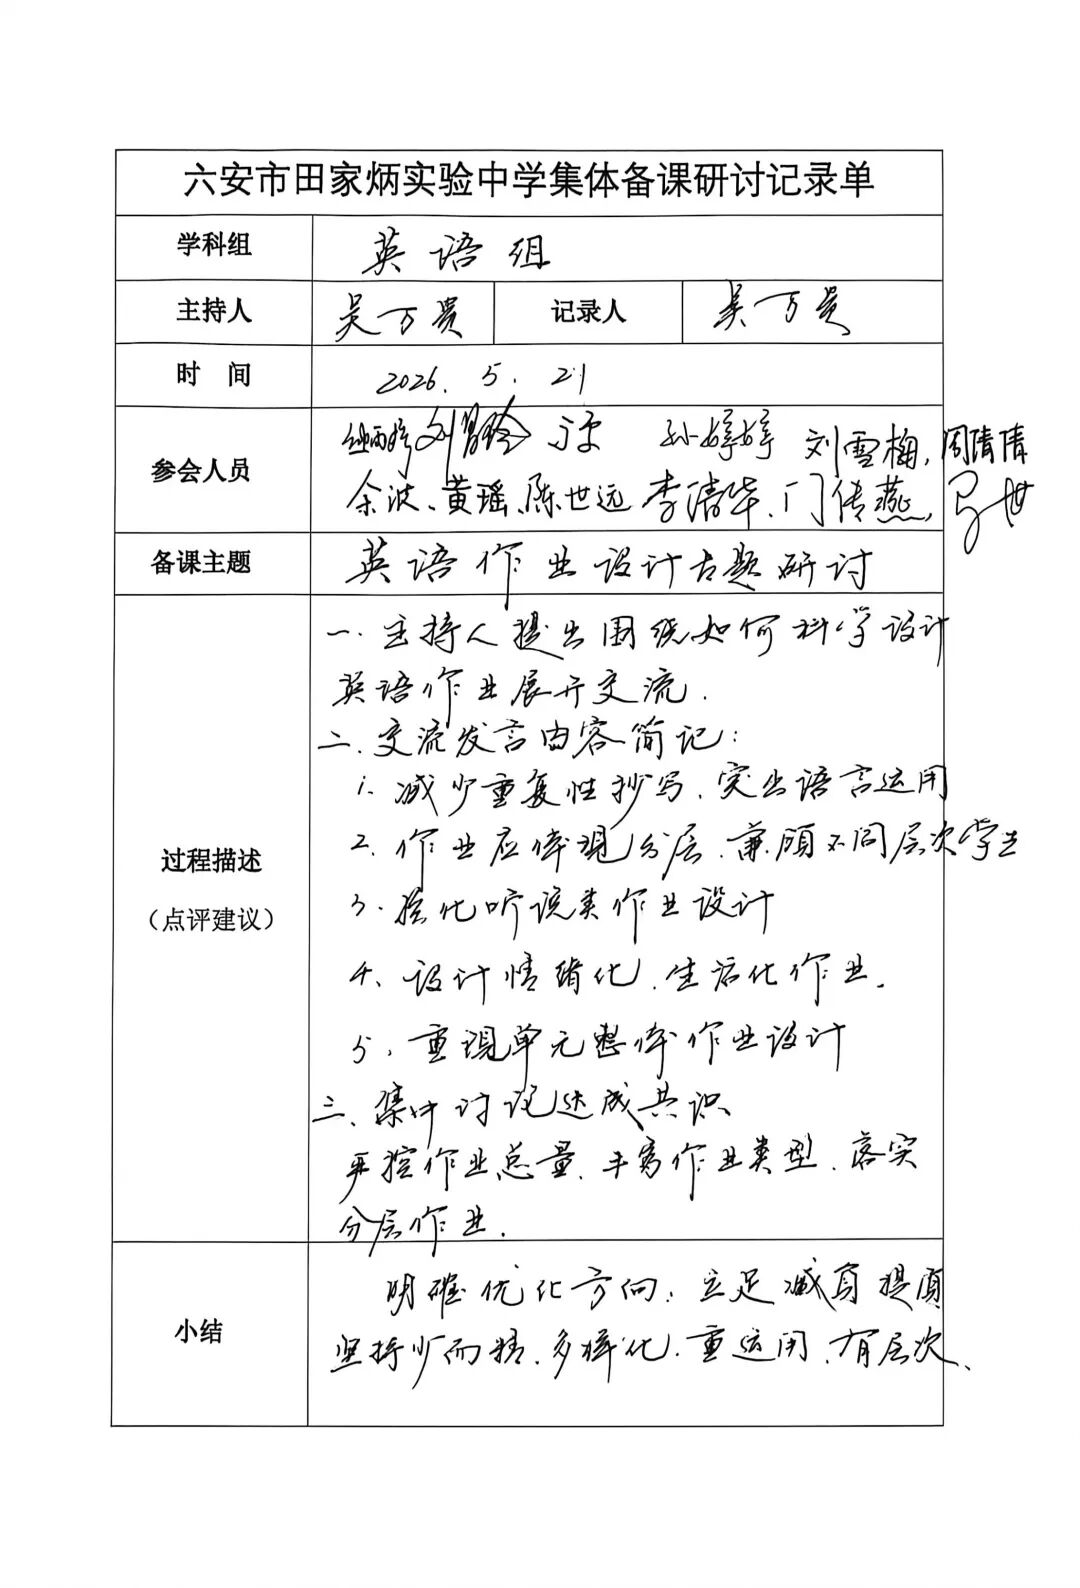 六安市田家炳实验中学集体备课研讨记录单
学科组 英语组
主持人 吴万贵 记录人 吴万贵
时 间 2026.5.21
孙婷婷 刘雪梅，周倩倩
参会人员
余波、黄瑶、陈世远、李清华、门传燕，
备课主题 英语作业设计专题研讨
一.主持人提出围绕如何科学设计
英语作业展开交流.
二.交流发言内容简记：
1.减少重复性抄写、突出语言运用
2.作业应体现分层、兼顾不同层次学生
过程描述
（点评建议）
3.强化听说类作业设计
4、设计情境化、生活化作业.
5、重视单元整体作业设计
三、集中讨论达成共识
严控作业总量、丰富作业类型、落实
分层作业.
小结
明确优化方向：立足减负提质
坚持少而精、多样化、重运用、有层次、